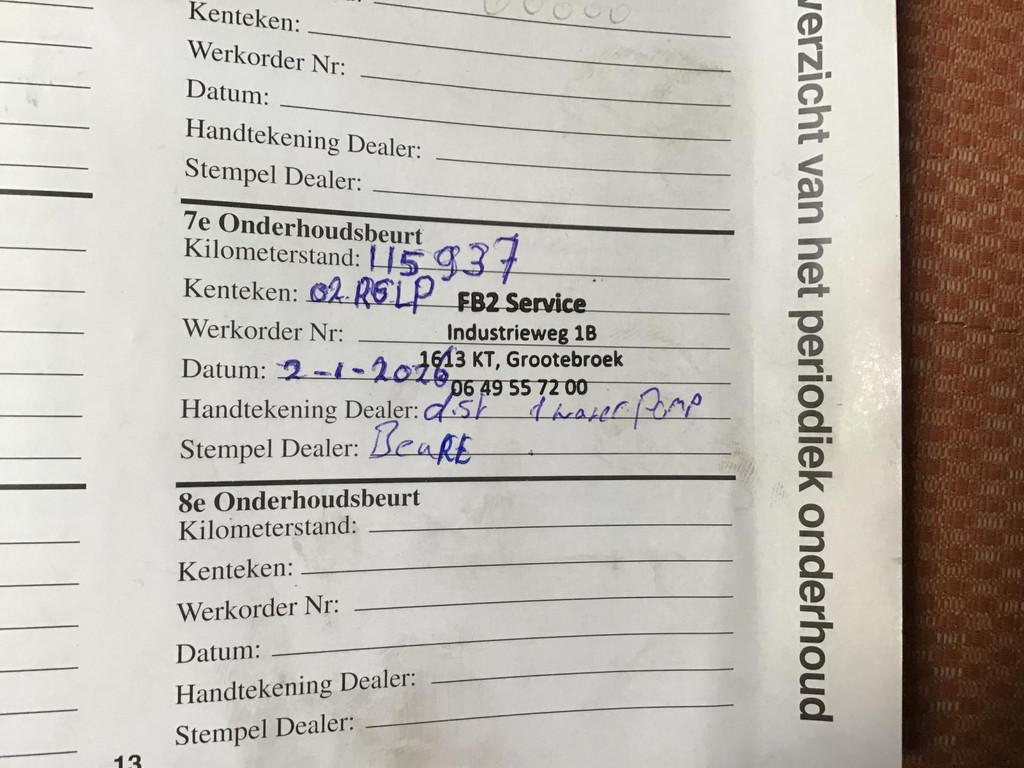 Kenteken:
Werkorder Nr:
Datum:
Handtekening Dealer:
Stempel Dealer:
7e Onderhoudsbeurt
Kilometerstand: 115937
Kenteken: 02.RGLP
FB2 Service
Werkorder Nr:
Industrieweg 1B
1613 KT, Grootebroek
Datum: 2-1-2026
06 49 55 72 00
Handtekening Dealer: dist + water Pomp
Stempel Dealer: BeuRE
8e Onderhoudsbeurt
Kilometerstand:
Kenteken:
Werkorder Nr:
Datum:
Handtekening Dealer:
Stempel Dealer:
13
verzicht van het periodiek onderhoud